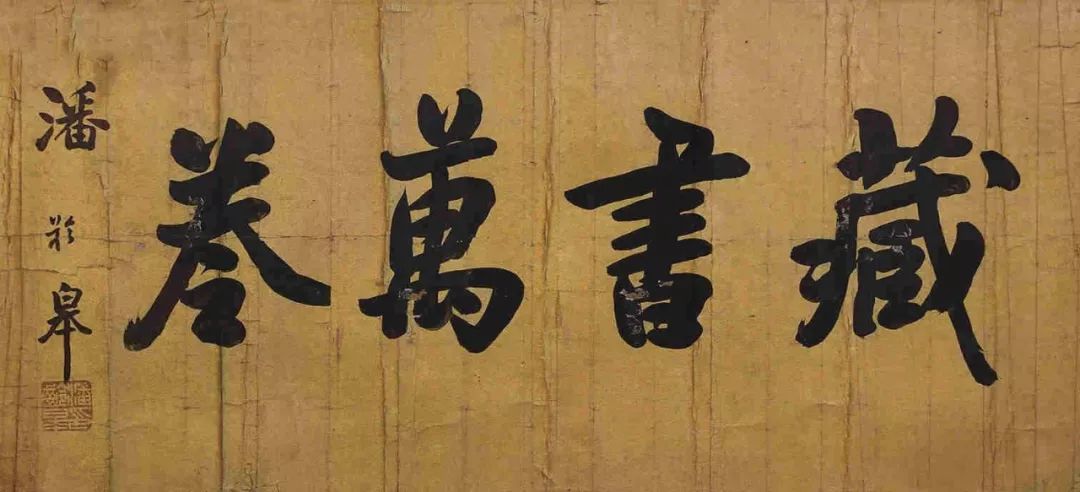 藏書萬卷
潘齡皋